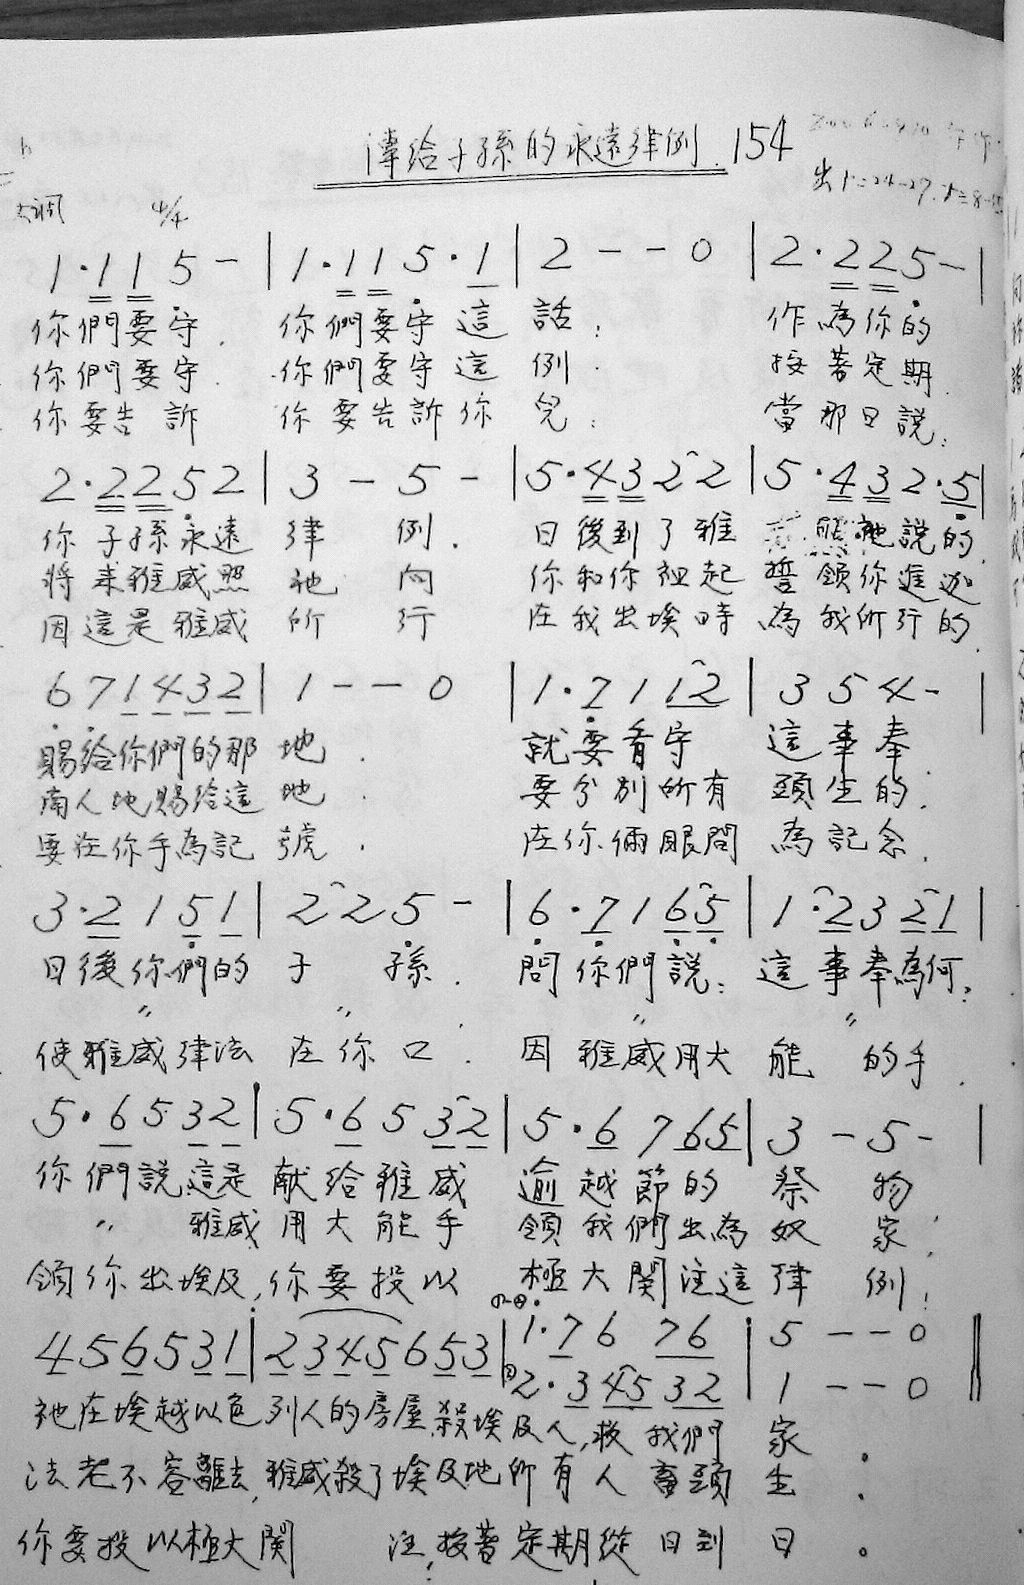 傳給子孫的永遠律例. 154
出
大調 4/4
1·11 5 - | 1·11 5·1 | 2 - - 0 | 2·225 - |
你們要守. 你們要守這 話: 作為你的
你們要守. 你們要守這 例. 按著定期.
你要告訴 你要告訴你 兒: 當那日說:
2·2252 | 3 - 5 - | 5·4322 | 5·432·5 |
你子孫永遠 律 例. 日後到了雅 照祂說的.
將來雅威照 祂 向 你和你祖起 誓領你進迦
因這是雅威 所 行 在我出埃時 為我所行的
671432 | 1 - - 0 | 1·7112 | 354 - |
賜給你們的那 地. 就要看守 這事奉.
南人地賜給這 地 要分別所有 頭生的.
要在你手為記 號. 在你倆眼間 為記念.
3·2151 | 225 - | 6·7165 | 1·2321 |
日後你們的 子 孫. 問你們說: 這事奉為何?
〃 〃 〃 〃
使雅威律法 在你口. 因雅威用大 能 的手.
5·6532 | 5·6532 | 5·6765 | 3 - 5 - |
你們說這是 献給雅威 逾越節的 祭 物
〃 雅威 用大能手 領我們出為 奴 家.
領你出埃及, 你要投以 極大関注這 律 例!
456531 | 2345653 | 1·76 76 | 5 - - 0
2·345 32 | 1 - - 0
祂在埃越以色列人的房屋.殺埃及人,救我們 家.
法老不容離去,雅威殺了埃及地所有人畜頭 生.
你要投以極大関 注,按著定期從日到 日。